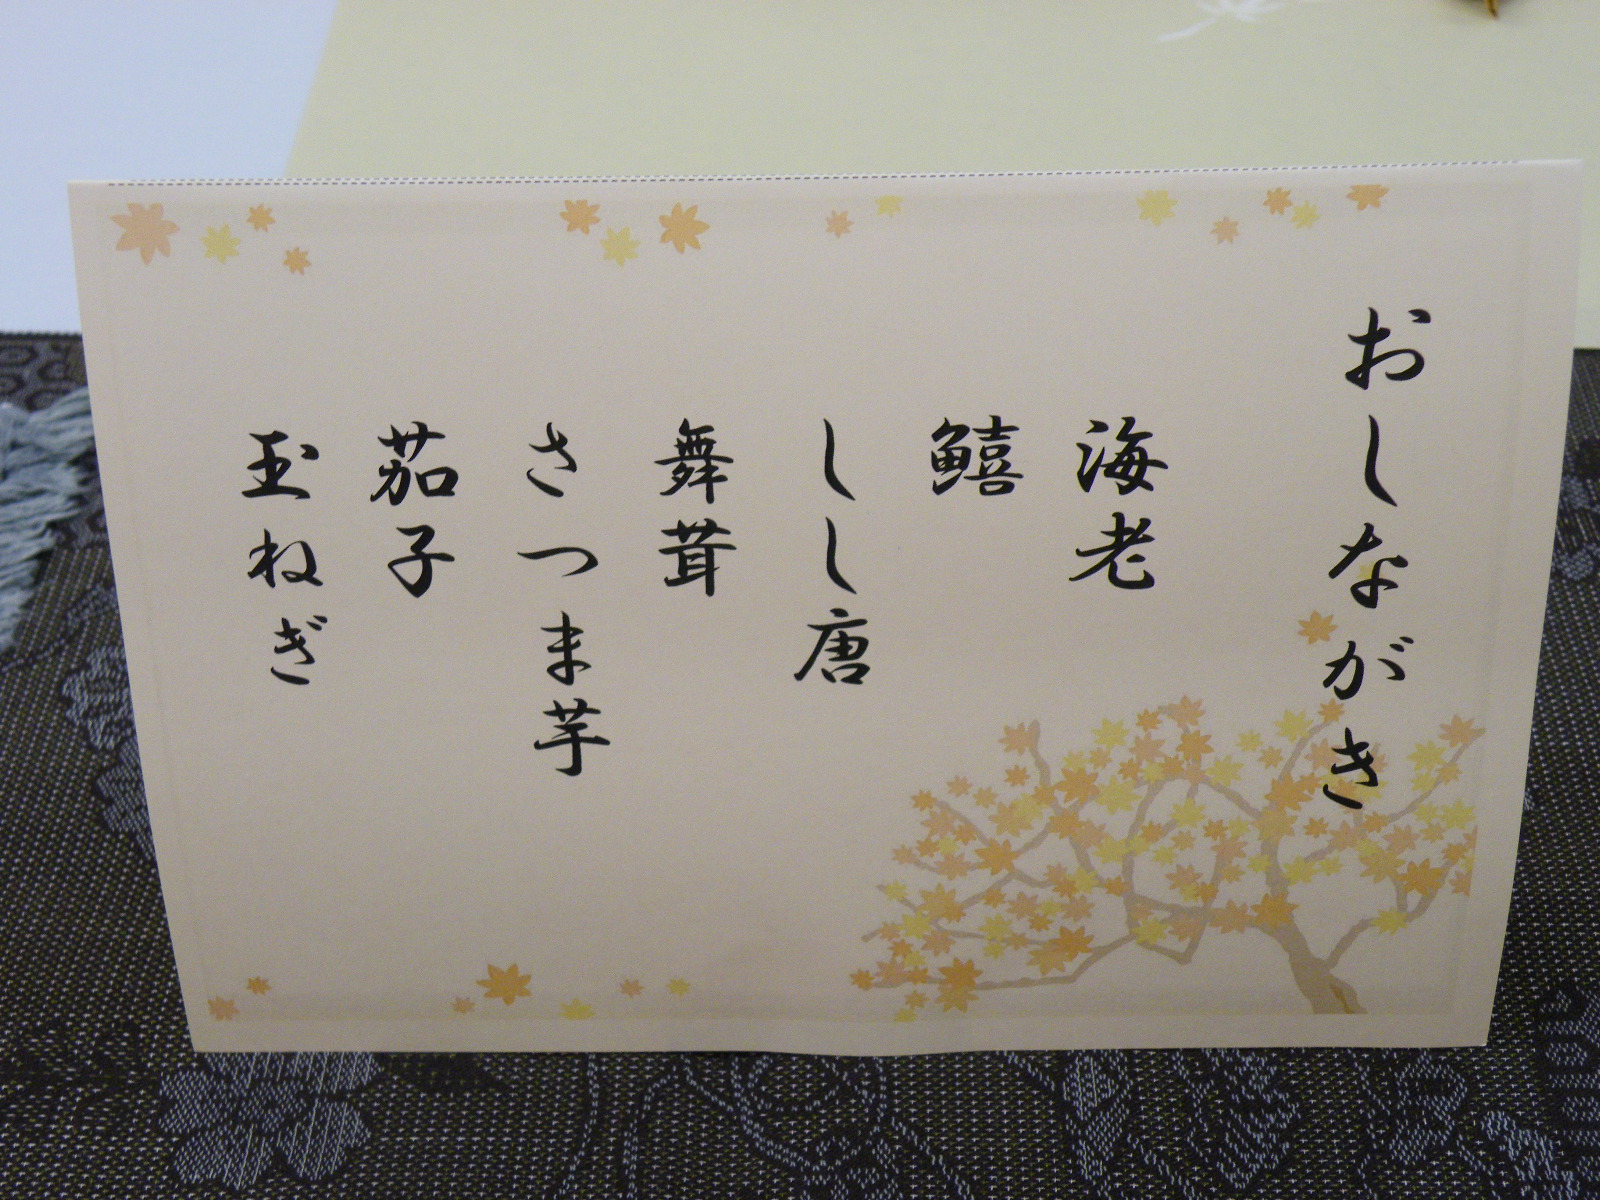 おしながき
海老
鱚
しし唐
舞茸
さつま芋
茄子
玉ねぎ